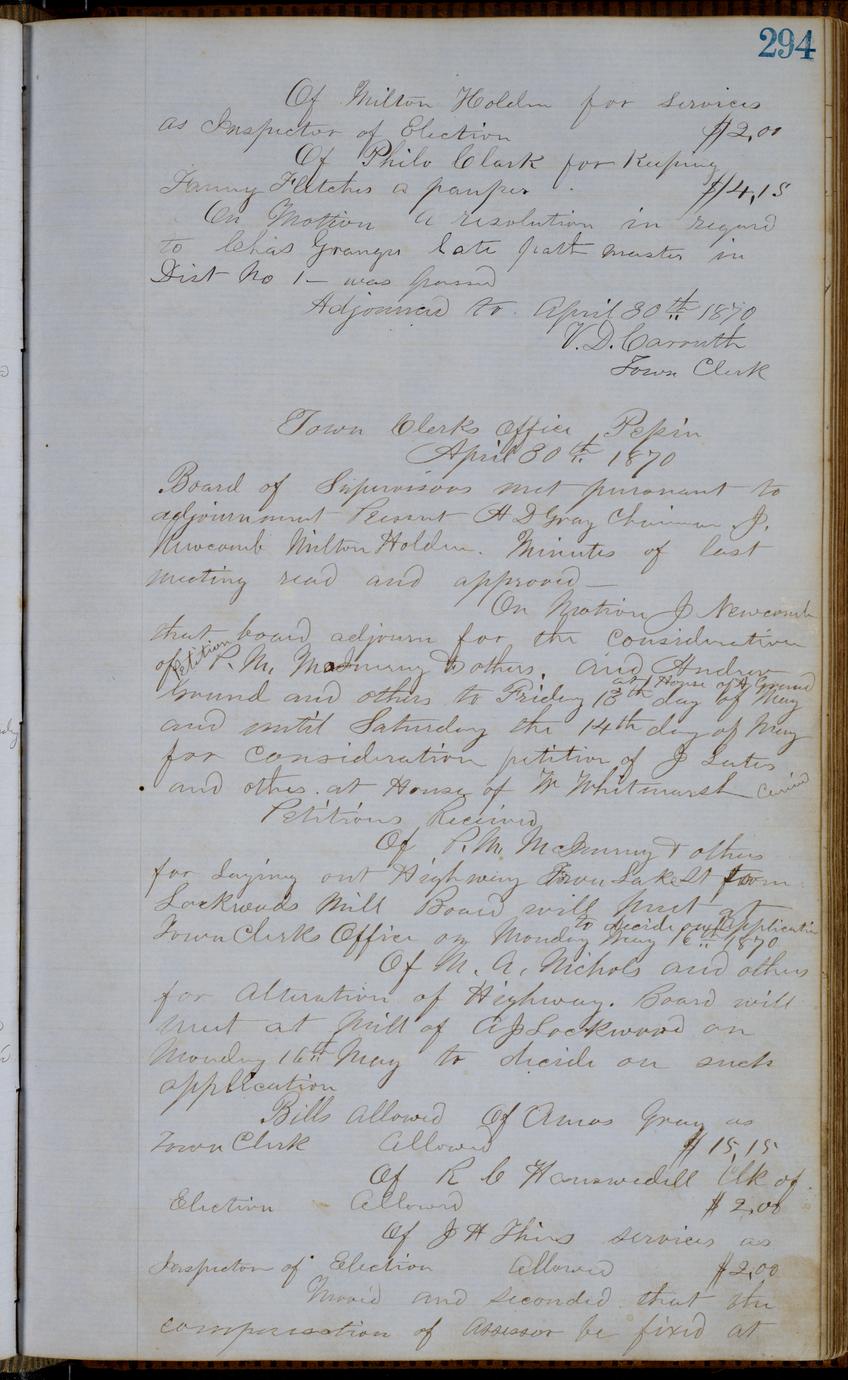 294
Of Milton Holden for services
as Inspector of Election $2,00
Of Philo Clark for Keeping
Fanny Fletcher a pauper $4,15
On Motion a resolution in regard
to Chas Granger late path master in
Dist No 1 - was passed
Adjourned to April 30th 1870
V. D. Carruth
Town Clerk
Town Clerks Office Pepin
April 30th 1870
Board of Supervisors met pursuant to
adjournment Present H D Gray Chairman J.
Newcomb Milton Holden. Minutes of last
meeting read and approved -
On Motion J Newcomb
that board adjourn for the consideration
of Petition P. M. McInurny & others. and Andrew
Ground and others to Friday 13th day of May
at House of A Ground
and until Saturday the 14th day of May
for consideration petition of J
and others. at House of W Whitmarsh Carried
Petitions Received
Of P. M. McInurny & others
for laying out Highway From Lake St from
Lockwoods Mill Board will meet at
Town Clerks Office on Monday May 1870
to decide on Application
Of M. A. Nichols and others
for Alteration of Highway. Board will
meet at Mill of A J Lockwood on
Monday 16th May to decide on such
application
Bills Allowed Of Amos Gray as
Town Clerk Allowed $15,15
Of R C Clk of
Election Allowed $2,00
Of J H services as
Inspector of Election Allowed $2,00
Moved and seconded that the
compensation of Assessor be fixed at